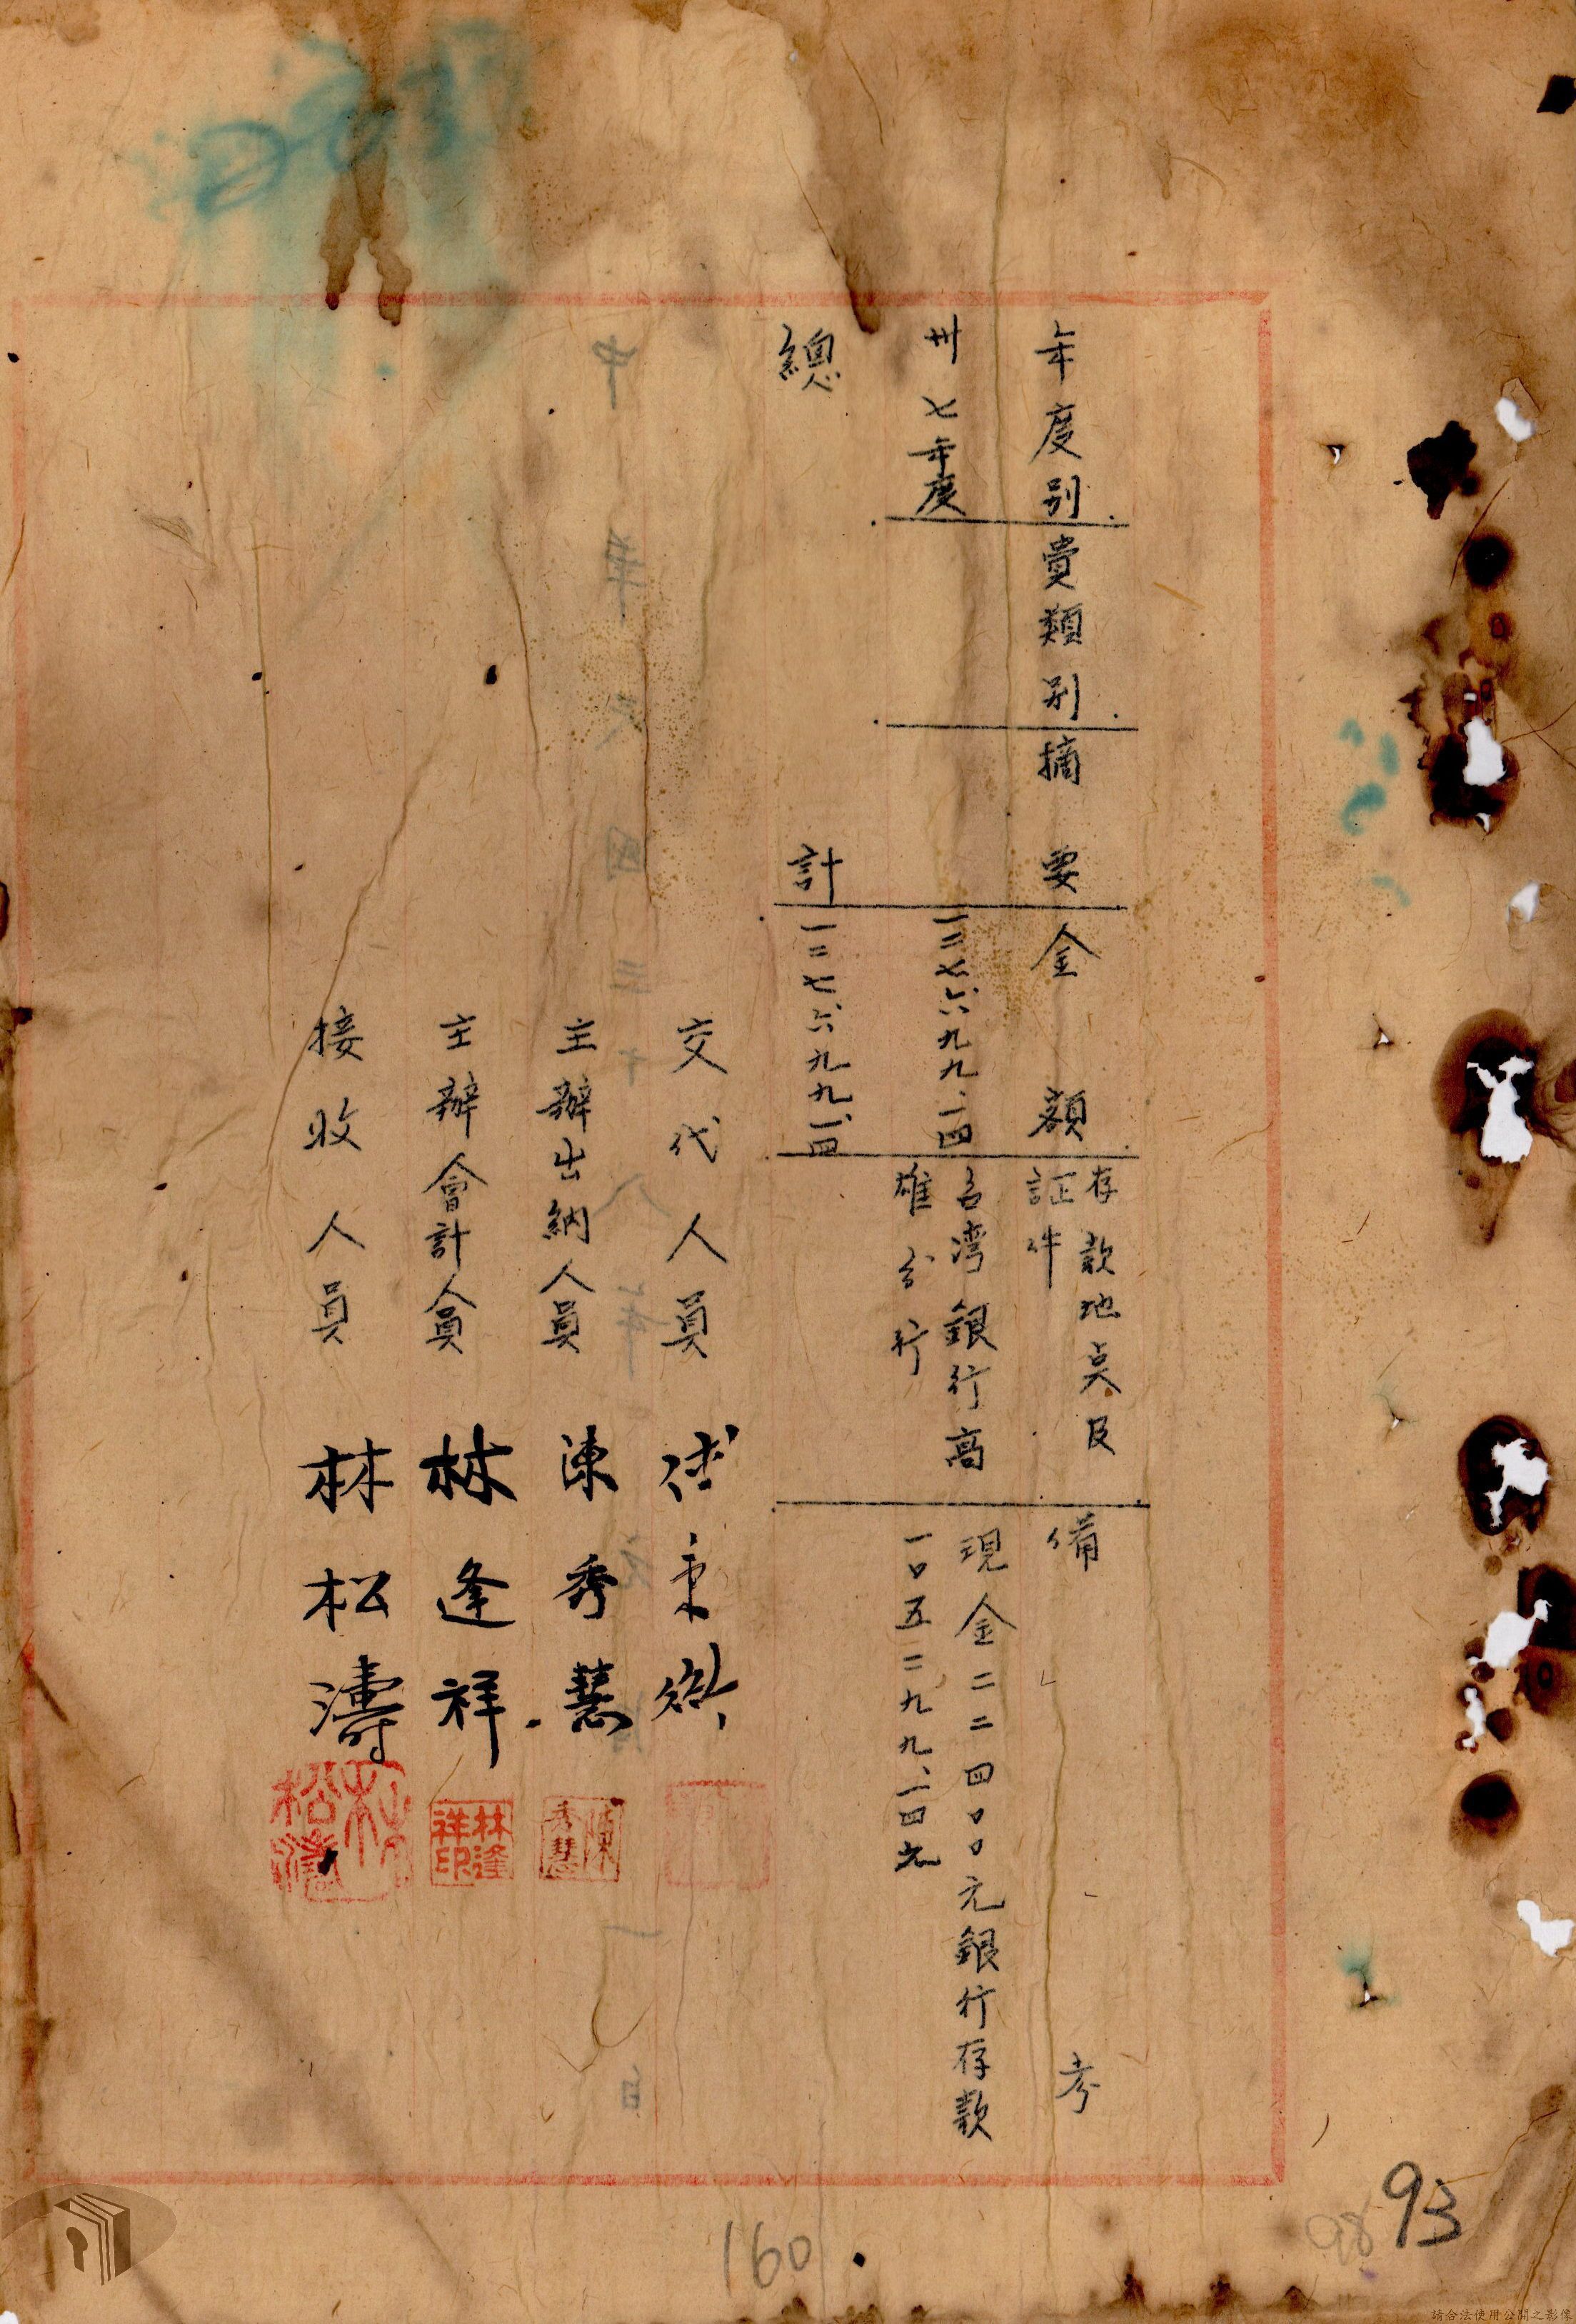 年度別 費類別 摘要 金額 存款地点及
証件 備考
卅七年度 一二七、六九九、一四 台湾銀行高
雄分行 現金二二四〇〇元銀行存款
一〇五二九九、一四元
總計 一二七、六九九、一四
交代人員
主辦出納人員 陳秀慧
陳秀慧
主辦會計人員 林逢祥
林逢祥印
接收人員 林松濤
林松濤
160
98
93
請合法使用公開之影像